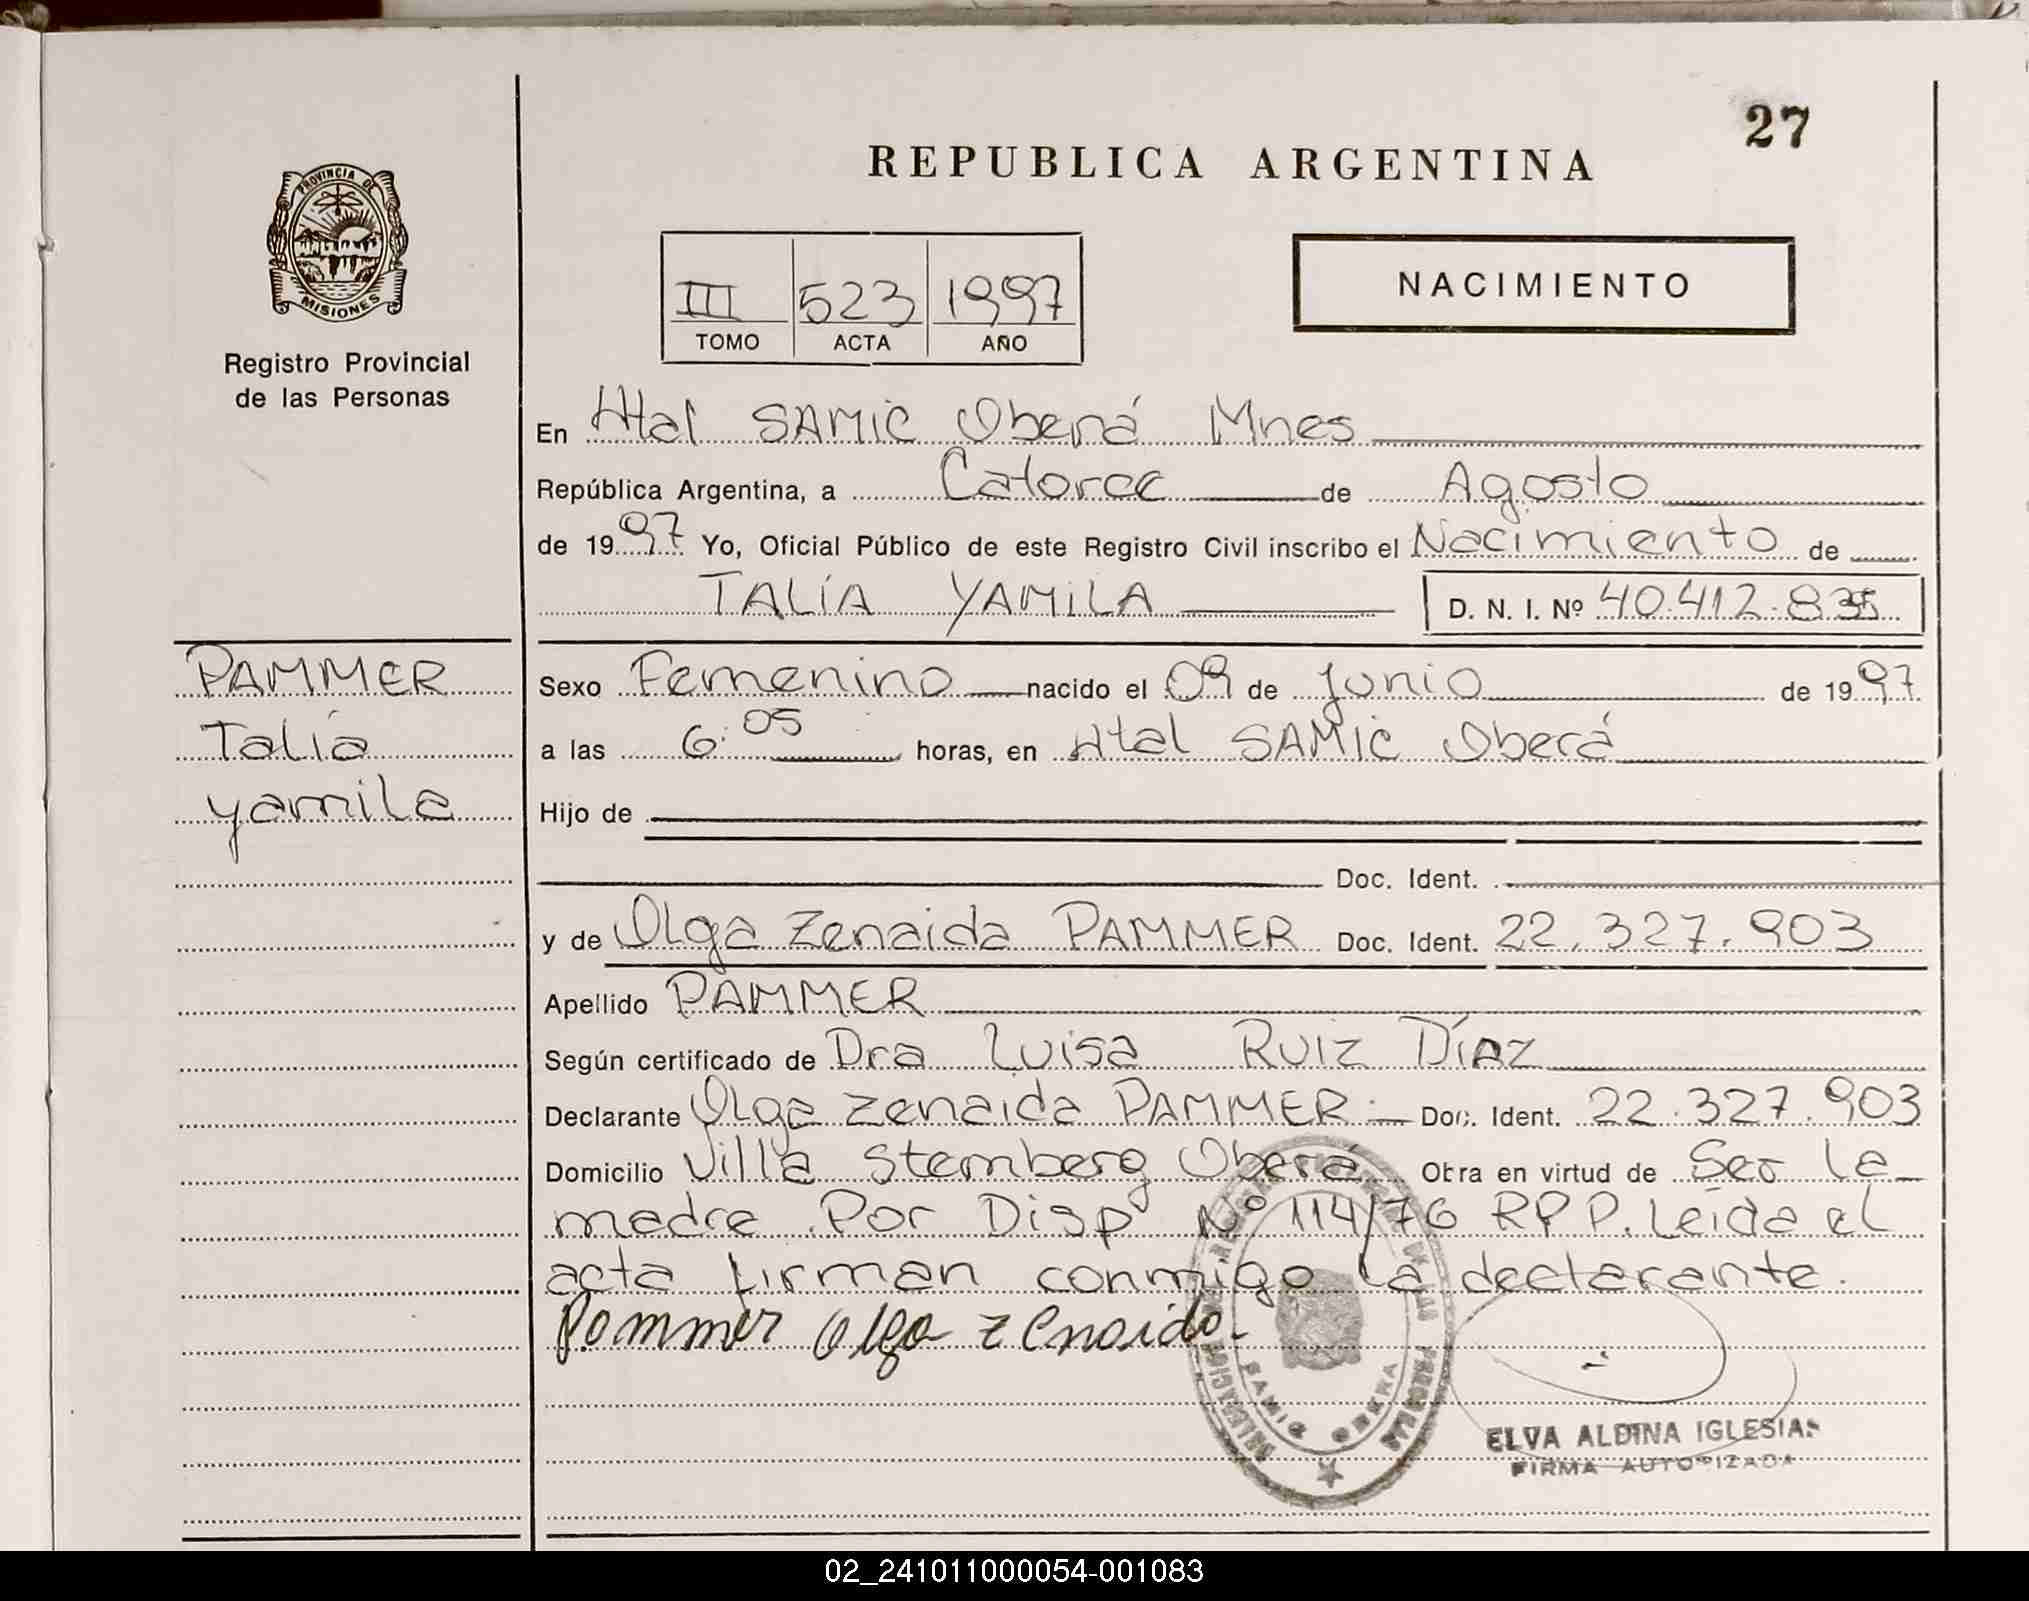 27
REPUBLICA ARGENTINA
PROVINCIA DE
MISIONES
Registro Provincial
de las Personas
III 523 1997
TOMO ACTA AÑO
NACIMIENTO
En Htal SAMIC Oberá Mnes
República Argentina, a Catorce de Agosto
de 1997 Yo, Oficial Público de este Registro Civil inscribo el Nacimiento de
TALÍA YAMILA D. N. I. Nº 40.412.835
PAMMER
Talía
yamila
Sexo Femenino nacido el 09 de Junio de 1997
a las 6:05 horas, en Htal SAMIC Oberá
Hijo de
Doc. Ident.
y de Olga Zenaida PAMMER Doc. Ident. 22.327.903
Apellido PAMMER
Según certificado de Dra Luisa Ruiz Díaz
Declarante Olga Zenaida PAMMER Doc. Ident. 22.327.903
Domicilio Villa Stemberg Oberá Obra en virtud de Ser la
madre. Por Disp Nº 114/76 RPP. Leída el
acta firman conmigo la declarante.
Pammer Olga Zenaida
SAMIC OBERA
ELVA ALDINA IGLESIAS
FIRMA AUTORIZADA
02_241011000054-001083